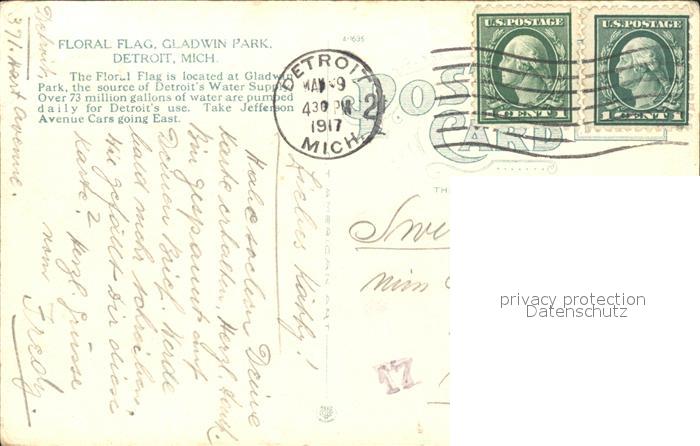 FLORAL FLAG, GLADWIN PARK,
DETROIT, MICH.
The Floral Flag is located at Gladwin
Park, the source of Detroit's Water Supply.
Over 73 million gallons of water are pumped
daily for Detroit's use. Take Jefferson
Avenue Cars going East.
A-1635
DETROIT
MAY 9
430 PM
1917
MICH.
2
U.S. POSTAGE
1 CENT 1
U.S. POSTAGE
1 CENT 1
POST
CARD
TH
Detroit,
371. Hart Avenue.
Liebes
Habe soeben Deine
Karte erhalten, Herzl. Dank.
Bin gespannt auf
Deinen Brief. Werde
bald mehr schreiben.
Wie gefällt dir diese
Karte? Herzl. Grüsse
vom Fredy.
17
privacy protection
Datenschutz